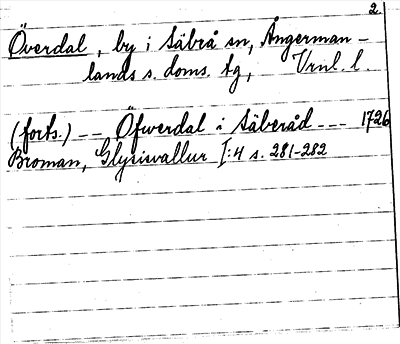 2.
Överdal, by i Säbrå sn, Ångerman-
lands s. doms. tg, Vrnl. l.
(forts.) -- Öfwerdal i Säberåd --- 1726
Broman, Glysisvallur I:4 s. 281-282